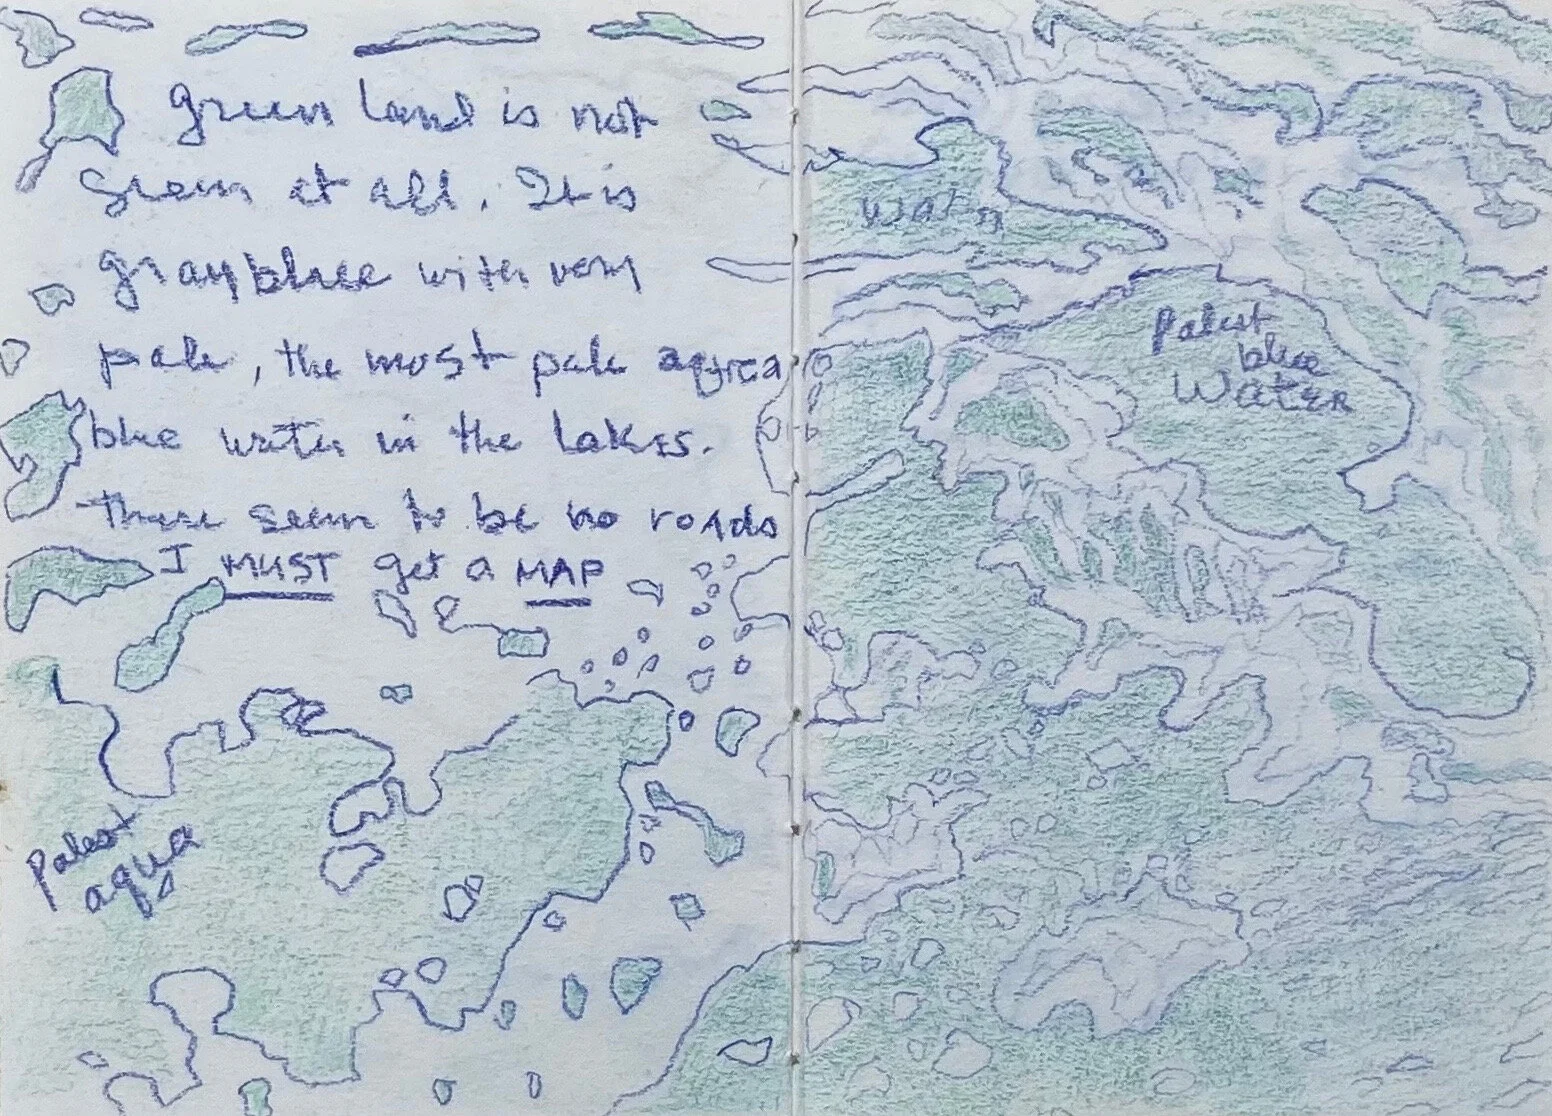 Green land is not
green at all. It is
gray blue with very
pale, the most pale aqua
blue water in the lakes.
There seem to be no roads
I MUST get a MAP
palest
aqua
water
palest
blue
Water